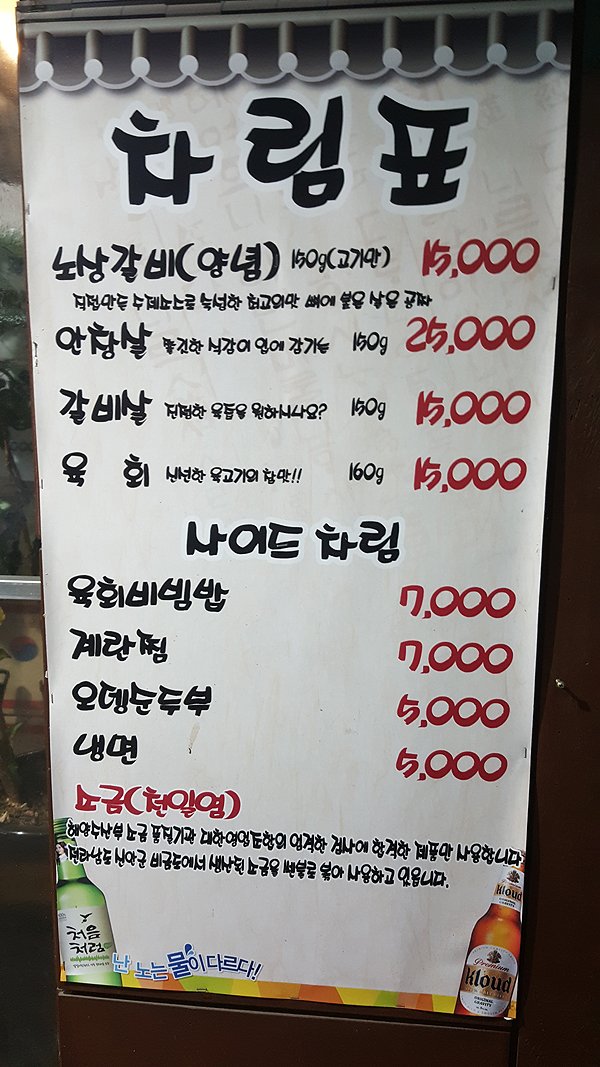 차림표
노상갈비(양념) 150g(고기만) 15,000
직접만든 수제소스로 숙성한 최고의맛 뼈에 붙은 살은 공짜
안창살 쫄깃한 식감이 입에 감기는 150g 25,000
갈비살 진정한 육즙을 원하시나요? 150g 15,000
육 회 신선한 육고기의 참맛!! 160g 15,000
사이드 차림
육회비빔밥 7,000
계란찜 7,000
오뎅순두부 5,000
냉면 5,000
소금(천일염)
해양수산부 소금 품질기관 대한염업조합의 엄격한 검사에 합격한 제품만 사용합니다
전라남도 신안군 비금도에서 생산된 소금을 센불로 볶아 사용하고 있읍니다.
처음
처럼
난 노는 물이 다르다!
Kloud
Premium
Kloud
ORIGINAL
GRAVITY